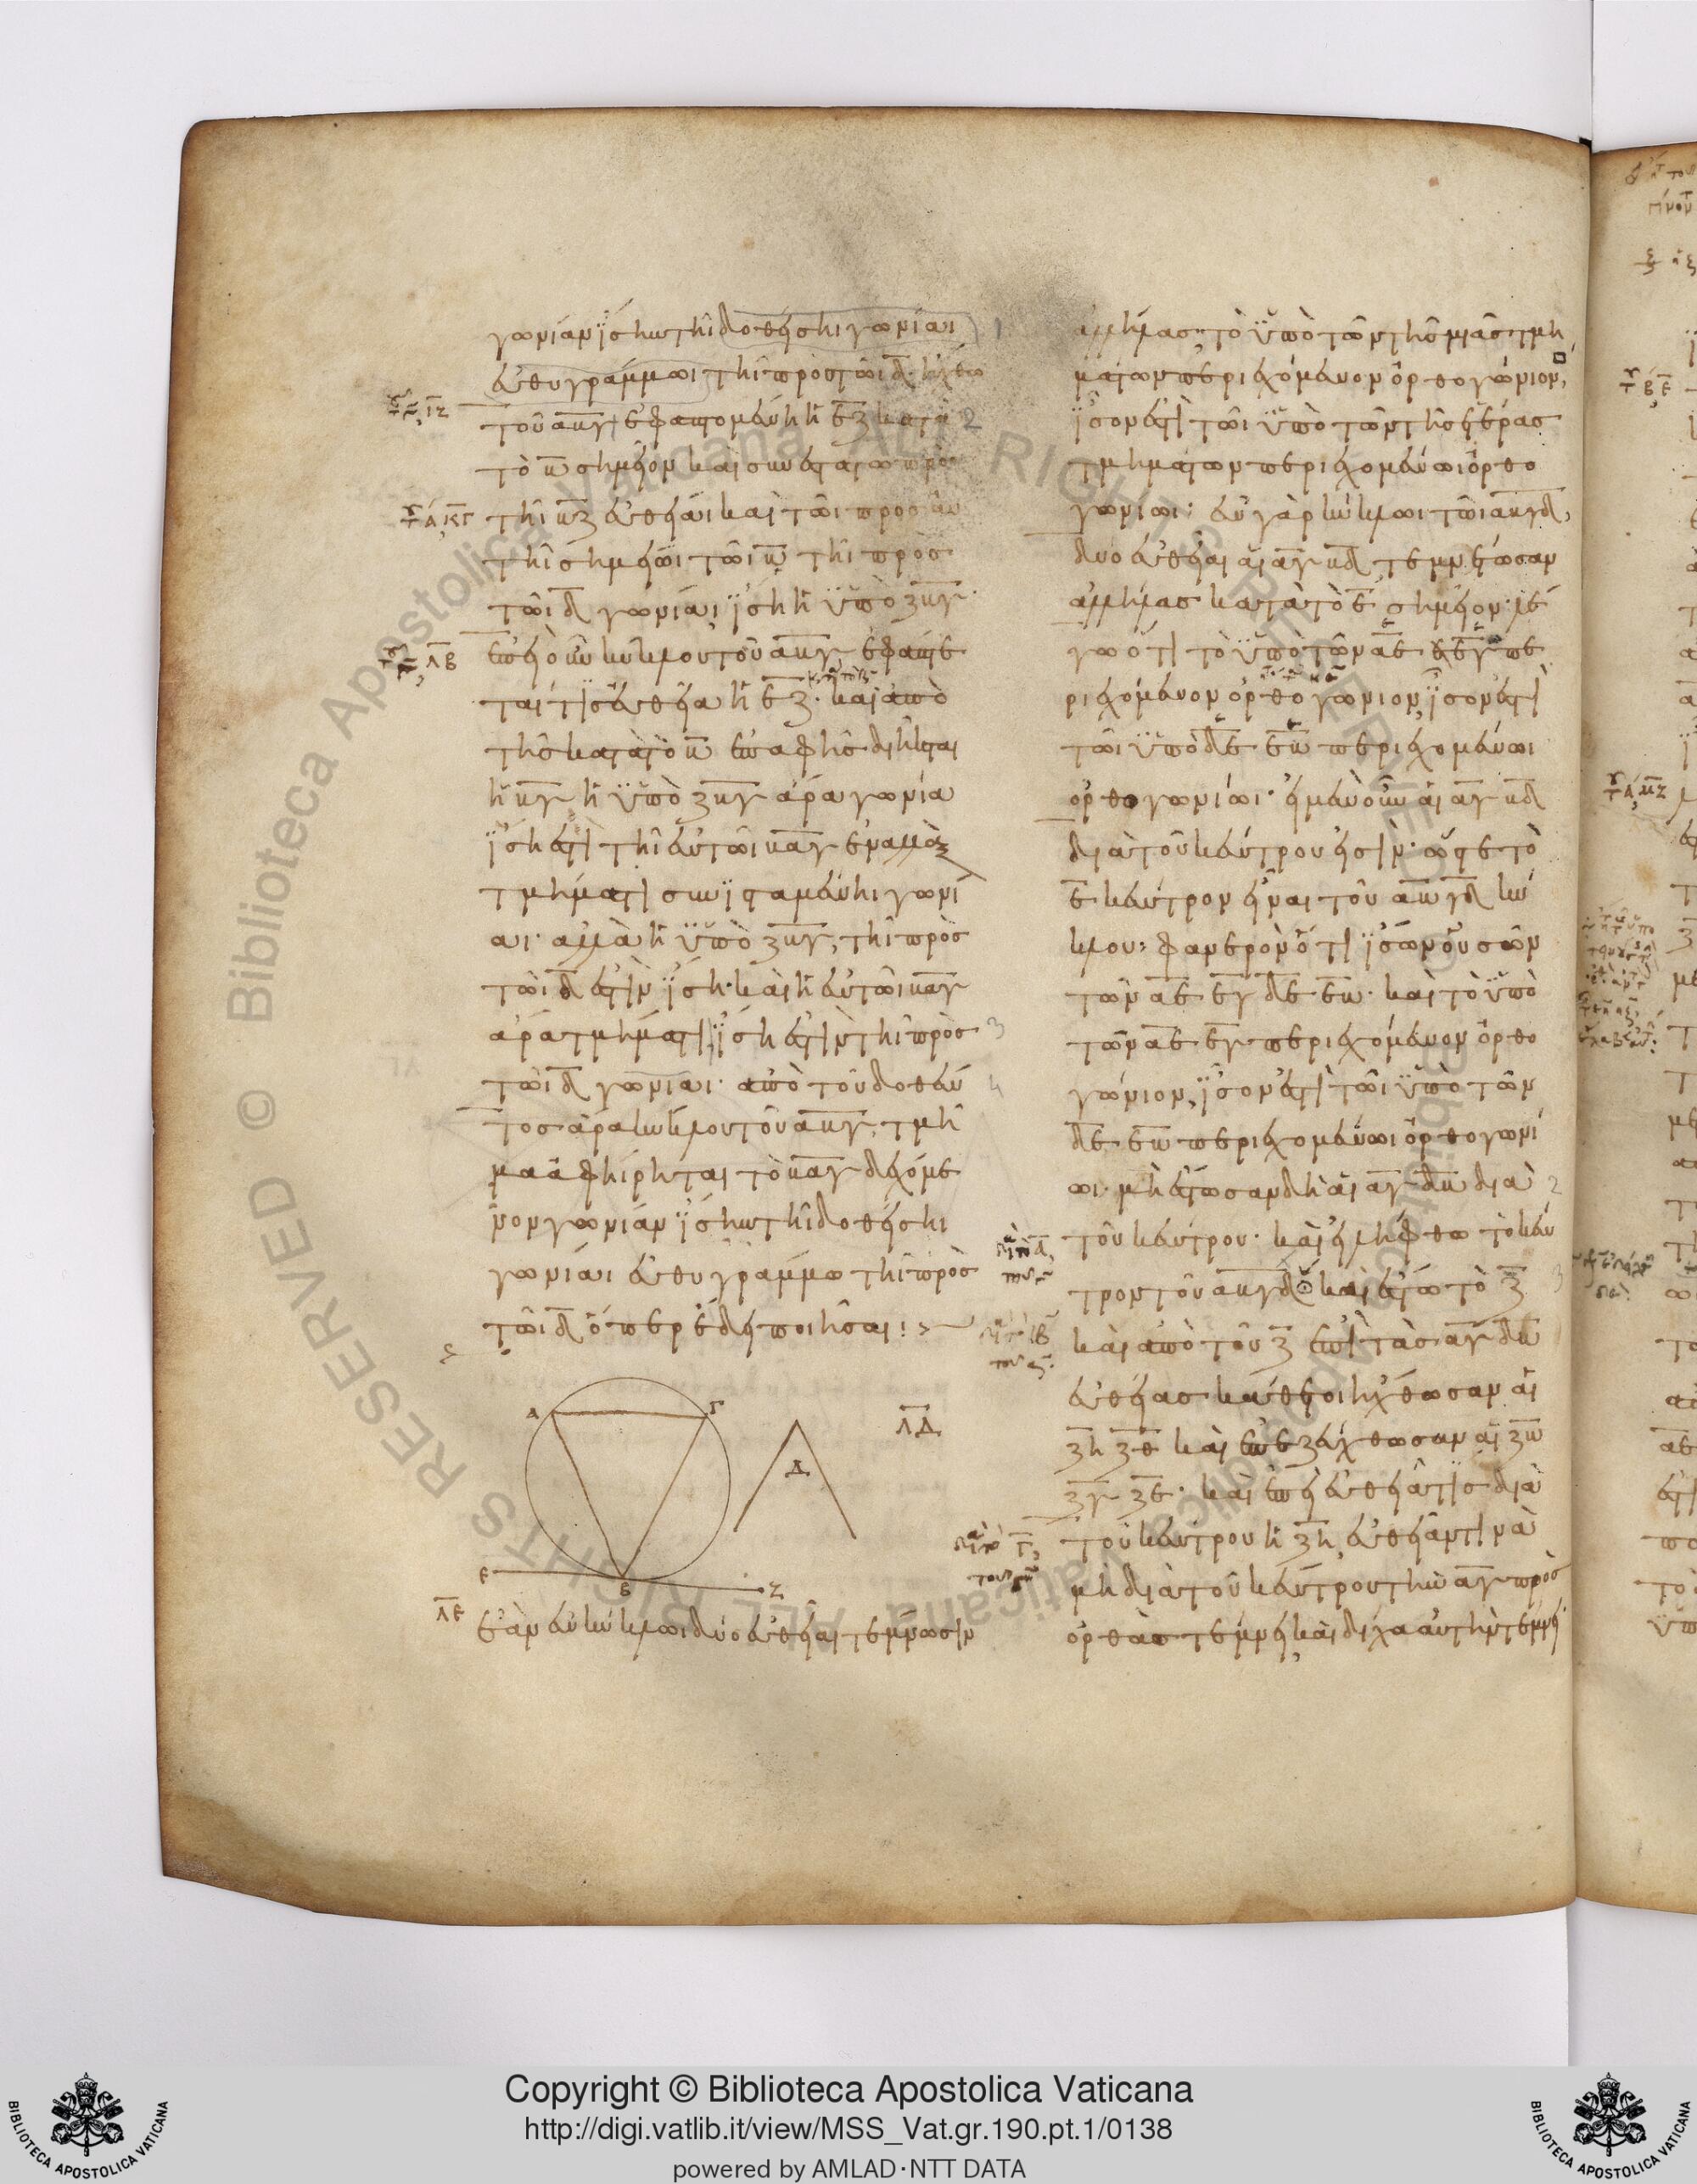 γωνίαν ἴσην τῆι δοθείσηι γωνίαι
εὐθυγράμμωι τῆι πρὸς τῶι δ. ἤχθω
τοῦ αβγ ἐφαπτομένη ἡ εζ κατὰ
τὸ β σημεῖον καὶ συνεστάτω πρὸς
τῆι βζ εὐθείαι καὶ τῶι πρὸς αὐ
τῆι σημείωι τῶι β τῆι πρὸς
τῶι δ γωνίαι ἴση ἡ ὑπὸ ζβγ.
ἐπεὶ οὖν κύκλου τοῦ αβγ ἐφάπτε
ταί τις εὐθεῖα ἡ εζ. καὶ ἀπὸ
τῆς κατὰ τὸ β ἐπαφῆς διῆκται
ἡ βγ ἡ ὑπὸ ζβγ ἄρα γωνία
ἴση ἐστὶ τῆι ἐν τῶι βαγ ἐναλλὰξ
τμήματι συνισταμένηι γωνί
αι. ἀλλὰ ἡ ὑπὸ ζβγ, τῆι πρὸς
τῶι δ ἐστὶν ἴση. καὶ ἡ ἐν τῶι βαγ
ἄρα τμήματι ἴση ἐστὶν τῆι πρὸς
τῶι δ γωνίαι. ἀπὸ τοῦ δοθέν
τος ἄρα κύκλου τοῦ αβγ, τμῆ
μα ἀφήιρηται τὸ βαγ δεχόμε
νον γωνίαν ἴσην τῆι δοθείσηι
γωνίαι εὐθυγράμμω τῆι πρὸς
τῶι δ ὅπερ ἔδει ποιῆσαι :>
Α Γ Δ ΛΔ
Ε Β Ζ
ΛΕ ἐὰν ἐν κύκλωι δύο εὐθεῖαι τέμνωσιν
ἀλλήλας, τὸ ὑπὸ τῶν τῆς μιᾶς τμη
μάτων περιεχόμενον ὀρθογώνιον,
ἴσον ἐστὶ τῶι ὑπὸ τῶν τῆς ἑτέρας
τμημάτων περιεχομένωι ὀρθο
γωνίωι: ἐν γὰρ κύκλωι τῶι αβγδ,
δύο εὐθεῖαι αἱ αγ βδ τεμνέτωσαν
ἀλλήλας κατὰ τὸ ε σημεῖον. λέ
γω ὅτι τὸ ὑπὸ τῶν αε εγ πε
ριεχόμενον ὀρθογώνιον, ἴσον ἐστὶ
τῶι ὑπὸ δε εβ περιεχομένωι
ὀρθογωνίωι. εἰ μὲν οὖν αἱ αγ βδ
διὰ τοῦ κέντρου εἰσὶν. ὥστε τὸ
ε κέντρον εἶναι τοῦ αβγδ κύ
κλου: φανερὸν ὅτι ἴσων οὐσῶν
τῶν αε εγ δε εβ. καὶ τὸ ὑπὸ
τῶν αε εγ περιεχόμενον ὀρθο
γώνιον, ἴσον ἐστὶ τῶι ὑπὸ τῶν
δε εβ περιεχομένωι ὀρθογωνί
ωι. μὴ ἔστωσαν δὴ αἱ αγ δβ διὰ
τοῦ κέντρου. καὶ εἰλήφθω τὸ κέν
τρον τοῦ αβγδ καὶ ἔστω τὸ ζ
καὶ ἀπὸ τοῦ ζ ἐπὶ τὰς αγ δβ
εὐθείας κάθετοι ἤχθωσαν αἱ
ζη ζθ καὶ ἐπεζεύχθωσαν αἱ ζβ
ζγ ζε. καὶ ἐπεὶ εὐθεῖά τις διὰ
τοῦ κέντρου ἡ ζη, εὐθεῖάν τινα
μὴ διὰ τοῦ κέντρου τὴν αγ πρὸς
ὀρθὰς τέμνει, καὶ δίχα αὐτὴν τέμνει
Copyright © Biblioteca Apostolica Vaticana
http://digi.vatlib.it/view/MSS_Vat.gr.190.pt.1/0138
powered by AMLAD·NTT DATA
BIBLIOTECA APOSTOLICA VATICANA
BIBLIOTECA APOSTOLICA VATICANA